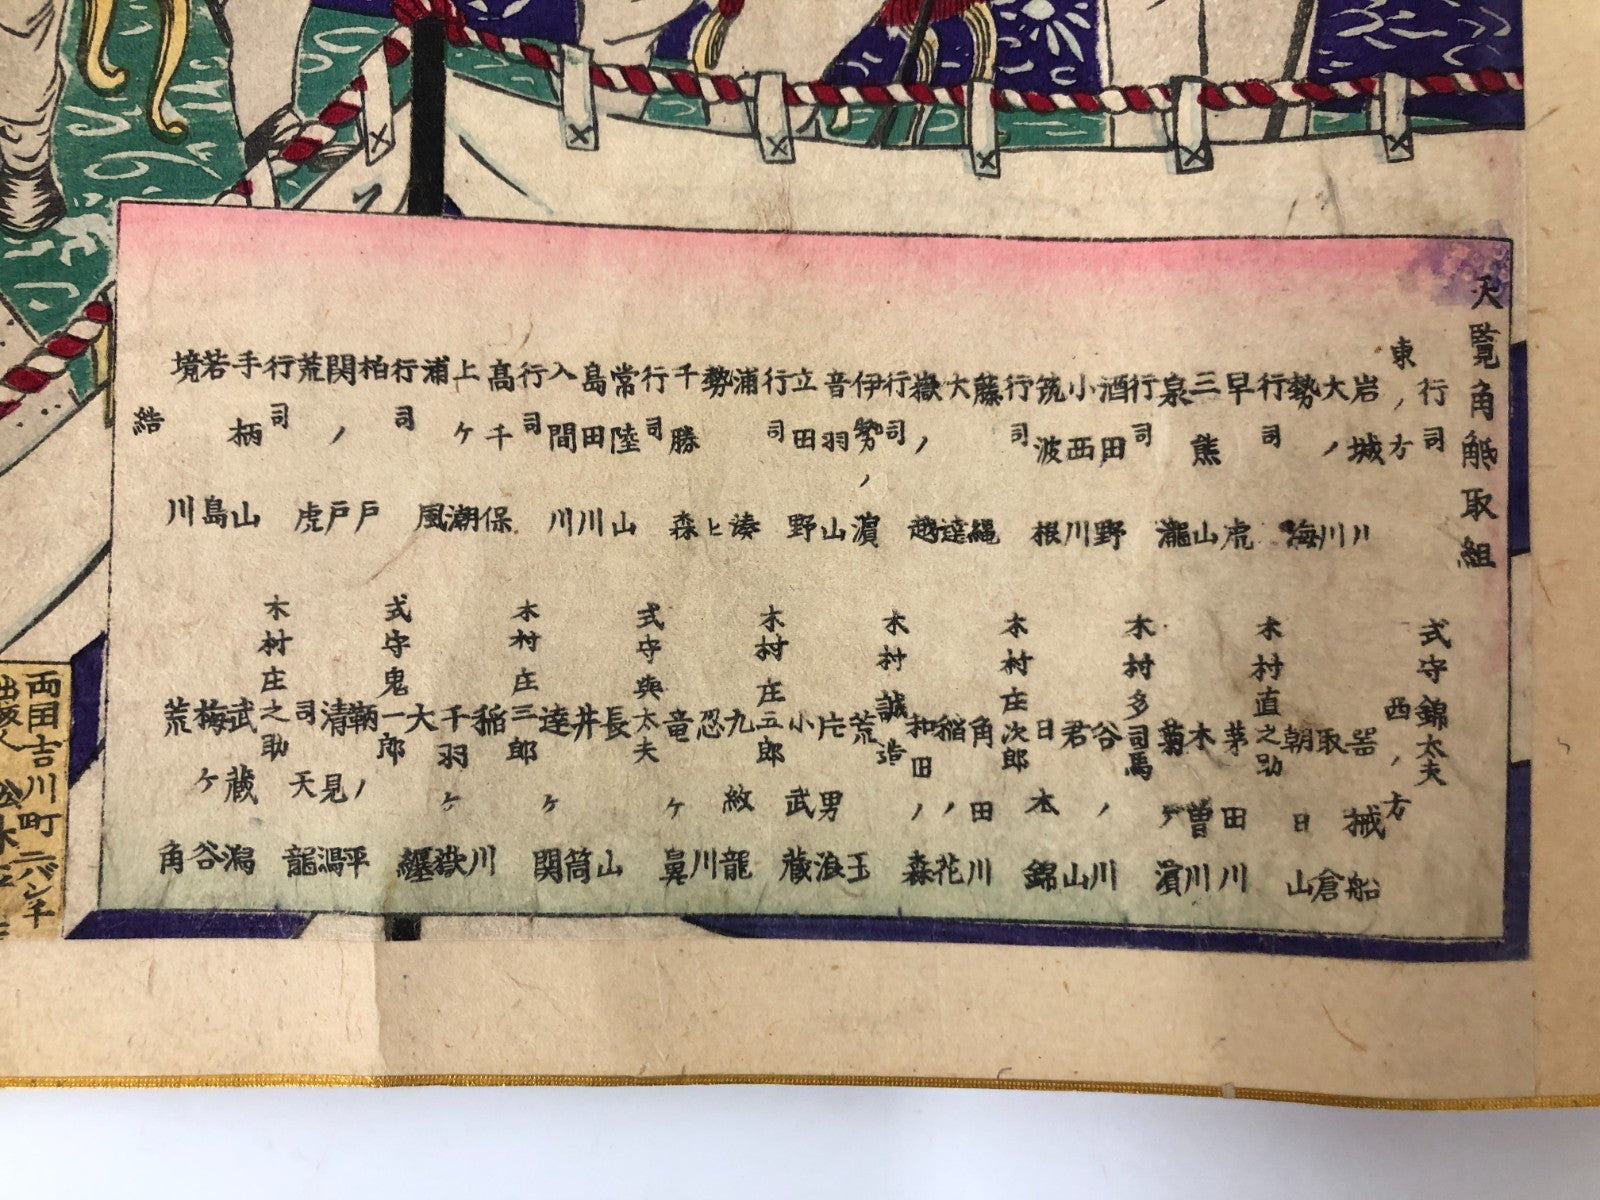 天覧角觝取組
行司 式守錦太夫
東ノ方 西ノ方
岩城川 器械船
大ノ川 取倉
勢海 朝日山
行司 木村直之助
早虎 茅田川
三熊山 木曽川
泉瀧 菊ヶ濱
行司 木村多司馬
酒田野 谷ノ川
小西川 君山
筑波根 日本錦
行司 木村庄次郎
藤縄 角田川
大達 稲ノ花
嶽ノ越 和田ノ森
行司 木村誠造
伊勢ノ濱 荒玉
音羽山 片男浪
立田野 小武蔵
行司 木村庄五郎
浦湊 九紋龍
勢ヒ 忍川
千勝森 竜ヶ鼻
行司 式守與太夫
常陸山 長山
島田川 井筒
入間川 達ヶ関
行司 木村庄三郎
高千保 稲川
上ヶ潮 千羽ヶ嶽
浦風 大纒
行司 式守鬼一郎
柏戸 鞆ノ平
関ノ戸 清見潟
荒虎 司天龍
行司 木村庄之助
手柄山 武蔵潟
若島 梅ヶ谷
境川 荒角
結
両国吉川町二バンチ